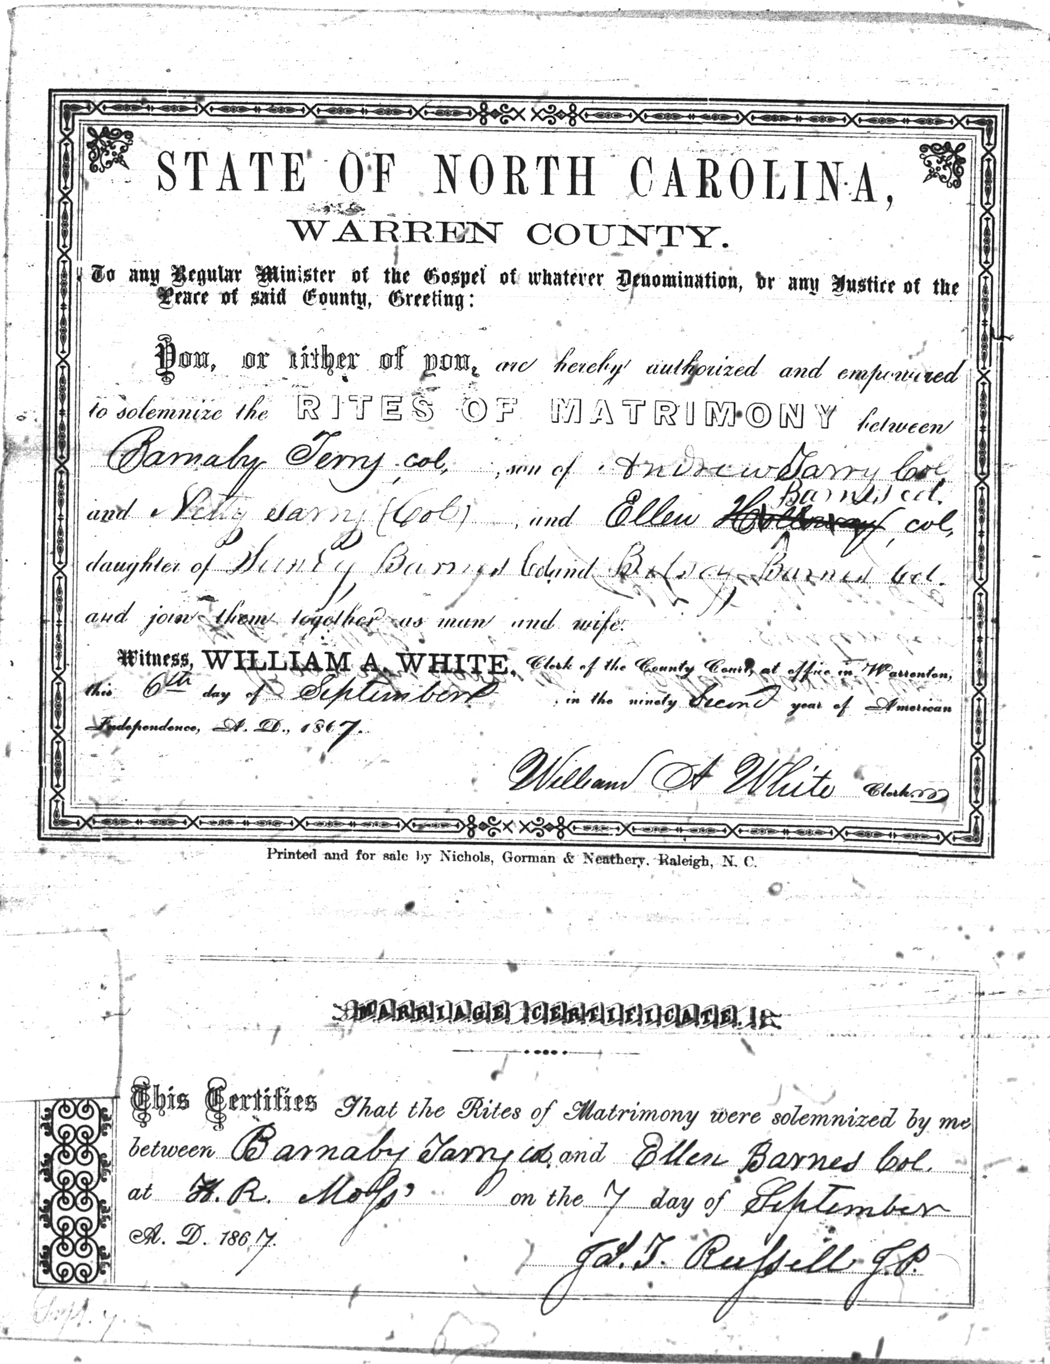 STATE OF NORTH CAROLINA,
WARREN COUNTY.
To any Regular Minister of the Gospel of whatever Denomination, or any Justice of the
Peace of said County, Greeting:
You, or either of you, are hereby authorized and empowered
to solemnize the RITES OF MATRIMONY between
Barnaby Terry, col, , son of Andrew Tarry Col
Barnes col.
and Netty Tarry (Col) , and Ellen Holloway, col,
daughter of Barnes Col and Betsey Barnes Col.
and join them together as man and wife.
Witness, WILLIAM A. WHITE, Clerk of the County Court, at office in Warrenton,
this 6th day of September , in the ninety Second year of American
Independence, A. D., 1867.
William A White Clerk
Printed and for sale by Nichols, Gorman & Neathery, Raleigh, N. C.
MARRIAGE CERTIFICATE.
This Certifies That the Rites of Matrimony were solemnized by me
between Barnaby Tarry col. and Ellen Barnes Col.
at H. R. Moss' on the 7 day of September
A. D. 1867.
T. Russell J.P.
Sept. 7